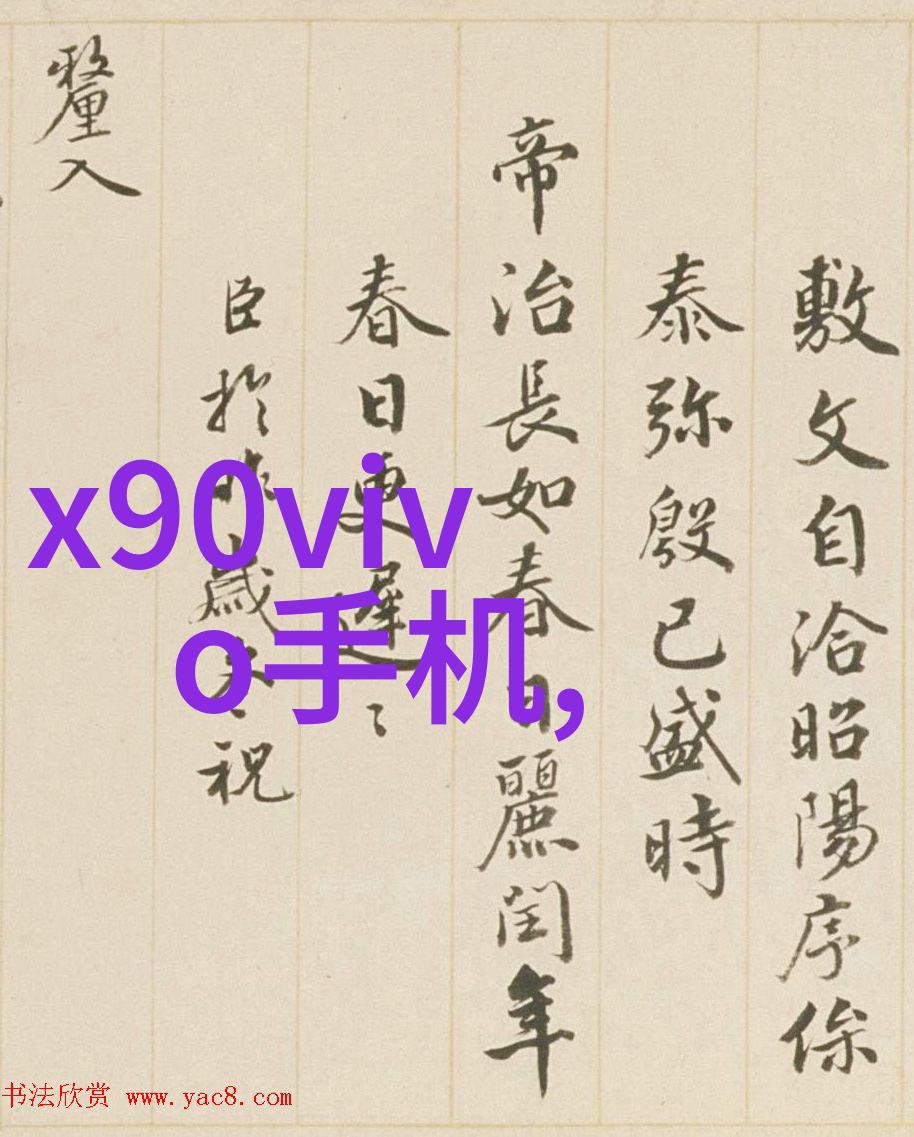 敷文自洽昭陽序條
泰弥殷已盛時
帝治長如春日麗閏年
春日更遲〻
臣於昨歲大〻祝
釐入
x90viv
o手机,
书法欣赏 www.yac8.com